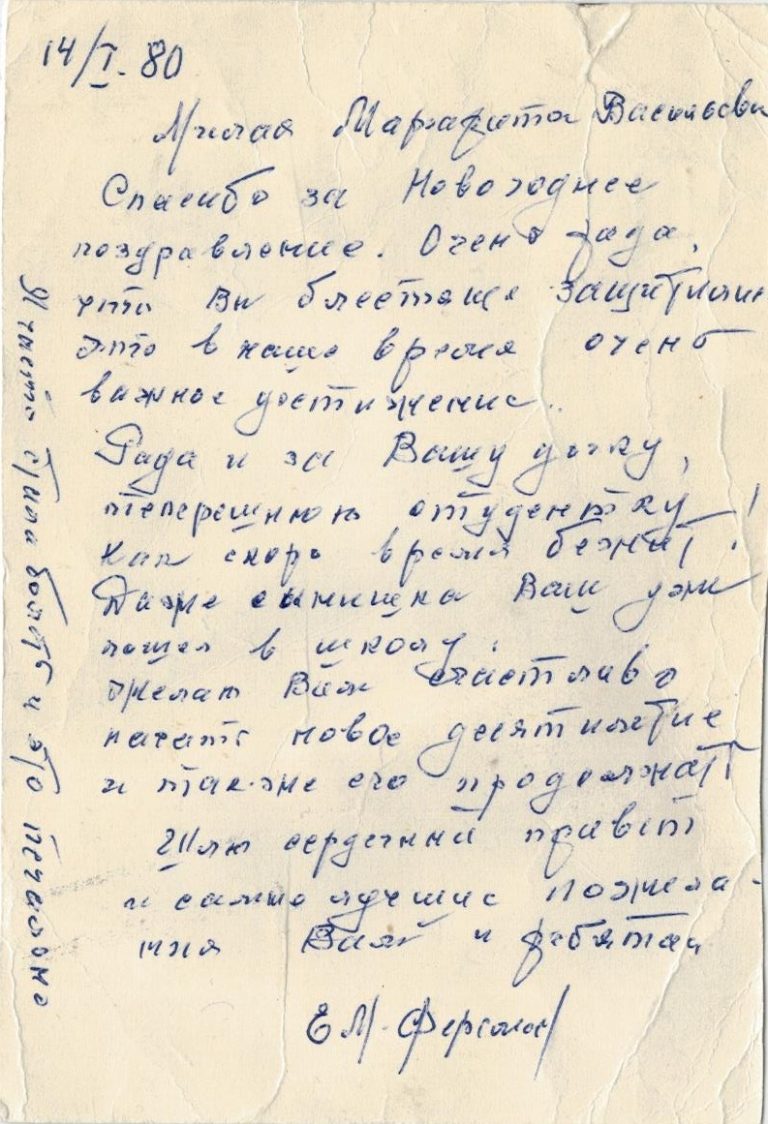 14/I. 80
Милая Маргарита Васильевн
Спасибо за Новогоднее
поздравление. Очень рада,
что Вы блестяще защитили
это в наше время очень
важное достижение.
Рада и за Вашу дочку,
теперешнюю студентку!
Как скоро время бежит!
Даже сынишка Ваш уже
пошел в школу.
Желаю Вам счастливо
начать новое десятилетие
и так-же его продолжать
Шлю сердечный привет
и самые лучшие пожела-
ния Вам и ребятам
Е М.
Я часто стала болеть и это печально